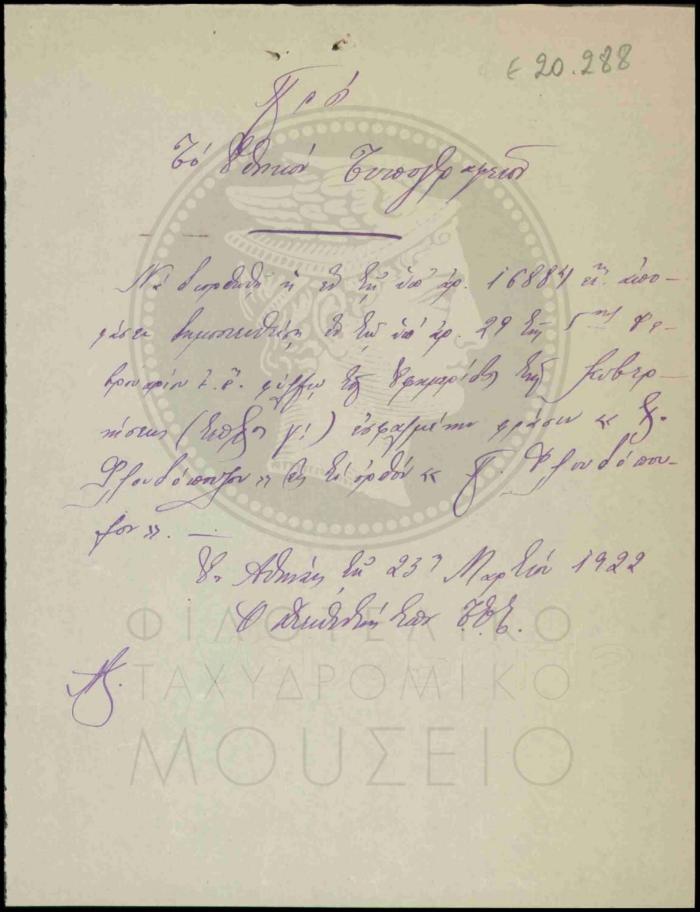 ε 20.288
Πρὸς
Τὸ Ἐθνικὸν Τυπογραφεῖον
Νὰ διορθωθῇ ἡ ἐν τῇ ὑπ' ἀρ. 16884 ἀπο-
φάσει δημοσιευθείσῃ ἐν τῷ ὑπ' ἀρ. 29 τῆς 5ης Φε-
βρουαρίου ἐ. ἔ. φύλλῳ τῆς Ἐφημερίδος τῆς Κυβερ-
νήσεως (τεῦχος γ!) ἐσφαλμένην φράσιν «
» εἰς τὸ ὀρθὸν «
».
Ἐν Ἀθήναις τῇ 23ῃ Μαρτίου 1922
Ὁ Διευθυντὴς τῶν
ΦΙΛΟΤΕΛΙΚΟ
ΤΑΧΥΔΡΟΜΙΚΟ
ΜΟΥΣΕΙΟ